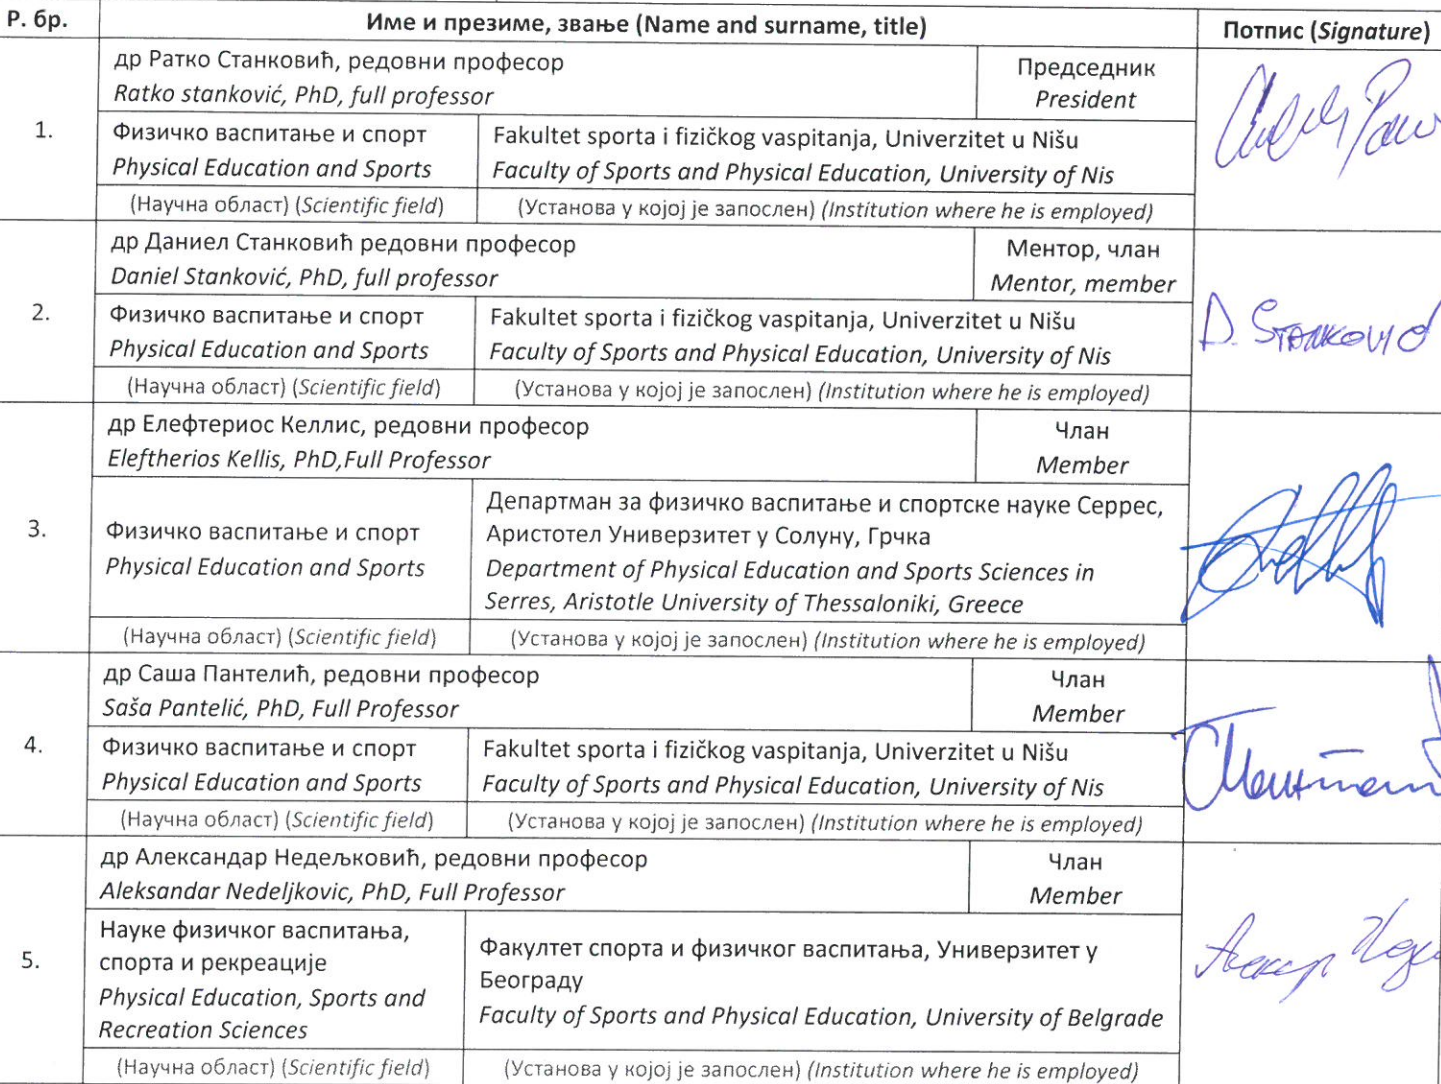 Р. бр.
Име и презиме, звање (Name and surname, title)
Потпис (Signature)
1.
др Ратко Станковић, редовни професор
Ratko stanković, PhD, full professor
Председник
President
Физичко васпитање и спорт
Physical Education and Sports
Fakultet sporta i fizičkog vaspitanja, Univerzitet u Nišu
Faculty of Sports and Physical Education, University of Nis
(Научна област) (Scientific field)
(Установа у којој је запослен) (Institution where he is employed)
2.
др Даниел Станковић редовни професор
Daniel Stanković, PhD, full professor
Ментор, члан
Mentor, member
Физичко васпитање и спорт
Physical Education and Sports
Fakultet sporta i fizičkog vaspitanja, Univerzitet u Nišu
Faculty of Sports and Physical Education, University of Nis
(Научна област) (Scientific field)
(Установа у којој је запослен) (Institution where he is employed)
D. Stanković
3.
др Елефтериос Келлис, редовни професор
Eleftherios Kellis, PhD,Full Professor
Члан
Member
Физичко васпитање и спорт
Physical Education and Sports
Департман за физичко васпитање и спортске науке Серрес,
Аристотел Универзитет у Солуну, Грчка
Department of Physical Education and Sports Sciences in
Serres, Aristotle University of Thessaloniki, Greece
(Научна област) (Scientific field)
(Установа у којој је запослен) (Institution where he is employed)
4.
др Саша Пантелић, редовни професор
Saša Pantelić, PhD, Full Professor
Члан
Member
Физичко васпитање и спорт
Physical Education and Sports
Fakultet sporta i fizičkog vaspitanja, Univerzitet u Nišu
Faculty of Sports and Physical Education, University of Nis
(Научна област) (Scientific field)
(Установа у којој је запослен) (Institution where he is employed)
5.
др Александар Недељковић, редовни професор
Aleksandar Nedeljkovic, PhD, Full Professor
Члан
Member
Науке физичког васпитања,
спорта и рекреације
Physical Education, Sports and
Recreation Sciences
Факултет спорта и физичког васпитања, Универзитет у
Београду
Faculty of Sports and Physical Education, University of Belgrade
(Научна област) (Scientific field)
(Установа у којој је запослен) (Institution where he is employed)